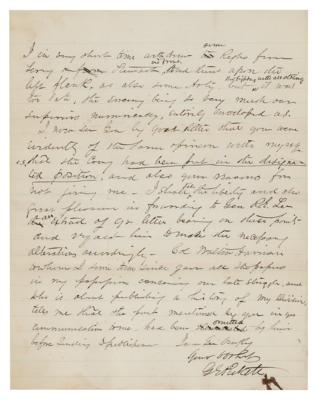 I in any short time withdrew some Regts from
Terry & from Steuart, in front, and threw upon the
left flank, as also some Arty. but it was
too late, the enemy being so very much our
superiors numerically, entirely enveloped us.
I now see Gen by your letter that you were
evidently of the same opinion with myself
that the Cavy had been put in the designa-
ted position, and also your reasons for
not giving me - I shall take the liberty and also
great pleasure in sending to Gen R E Lee
an extract of yr letter bearing on these points
and request him to make the necessary
alterations accordingly - Col Walter Harrison
to whom I some time since gave all the papers
in my possession concerning our late struggle, and
who is about publishing a history of my Division
tells me that the part mentioned by you in yr
communication to me had been omitted by him
before sending to publisher I am Gen Very truly
Your ob Svt
G E Pickett